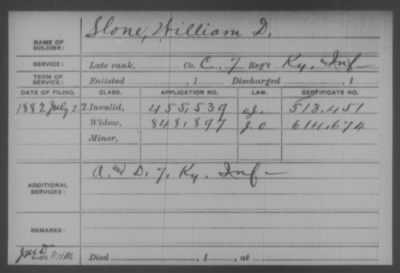 NAME OF SOLDIER: Slone, William D.
SERVICE: Late rank, Co. C. 7 Reg't Ky. Inf
TERM OF SERVICE: Enlisted , 1 Discharged , 1
DATE OF FILING. CLASS. APPLICATION NO. LAW. CERTIFICATE NO.
1882 July 7 Invalid, 455,539 513,451
Widow, 848,897 614,674
Minor,
ADDITIONAL SERVICES: A. and D. 7, Ky. Inf
REMARKS:
Died , 1 , at